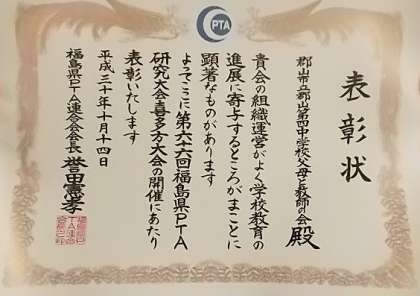 PTA
表彰状
郡山市立郡山第四中学校父母と教師の会 殿
貴会の組織運営がよく学校教育の
進展に寄与するところがまことに
顕著なものがあります
よってここに第六十六回福島県PTA
研究大会喜多方大会の開催にあたり
表彰いたします
平成三十年十月十四日
福島県PTA連合会会長 誉田憲孝